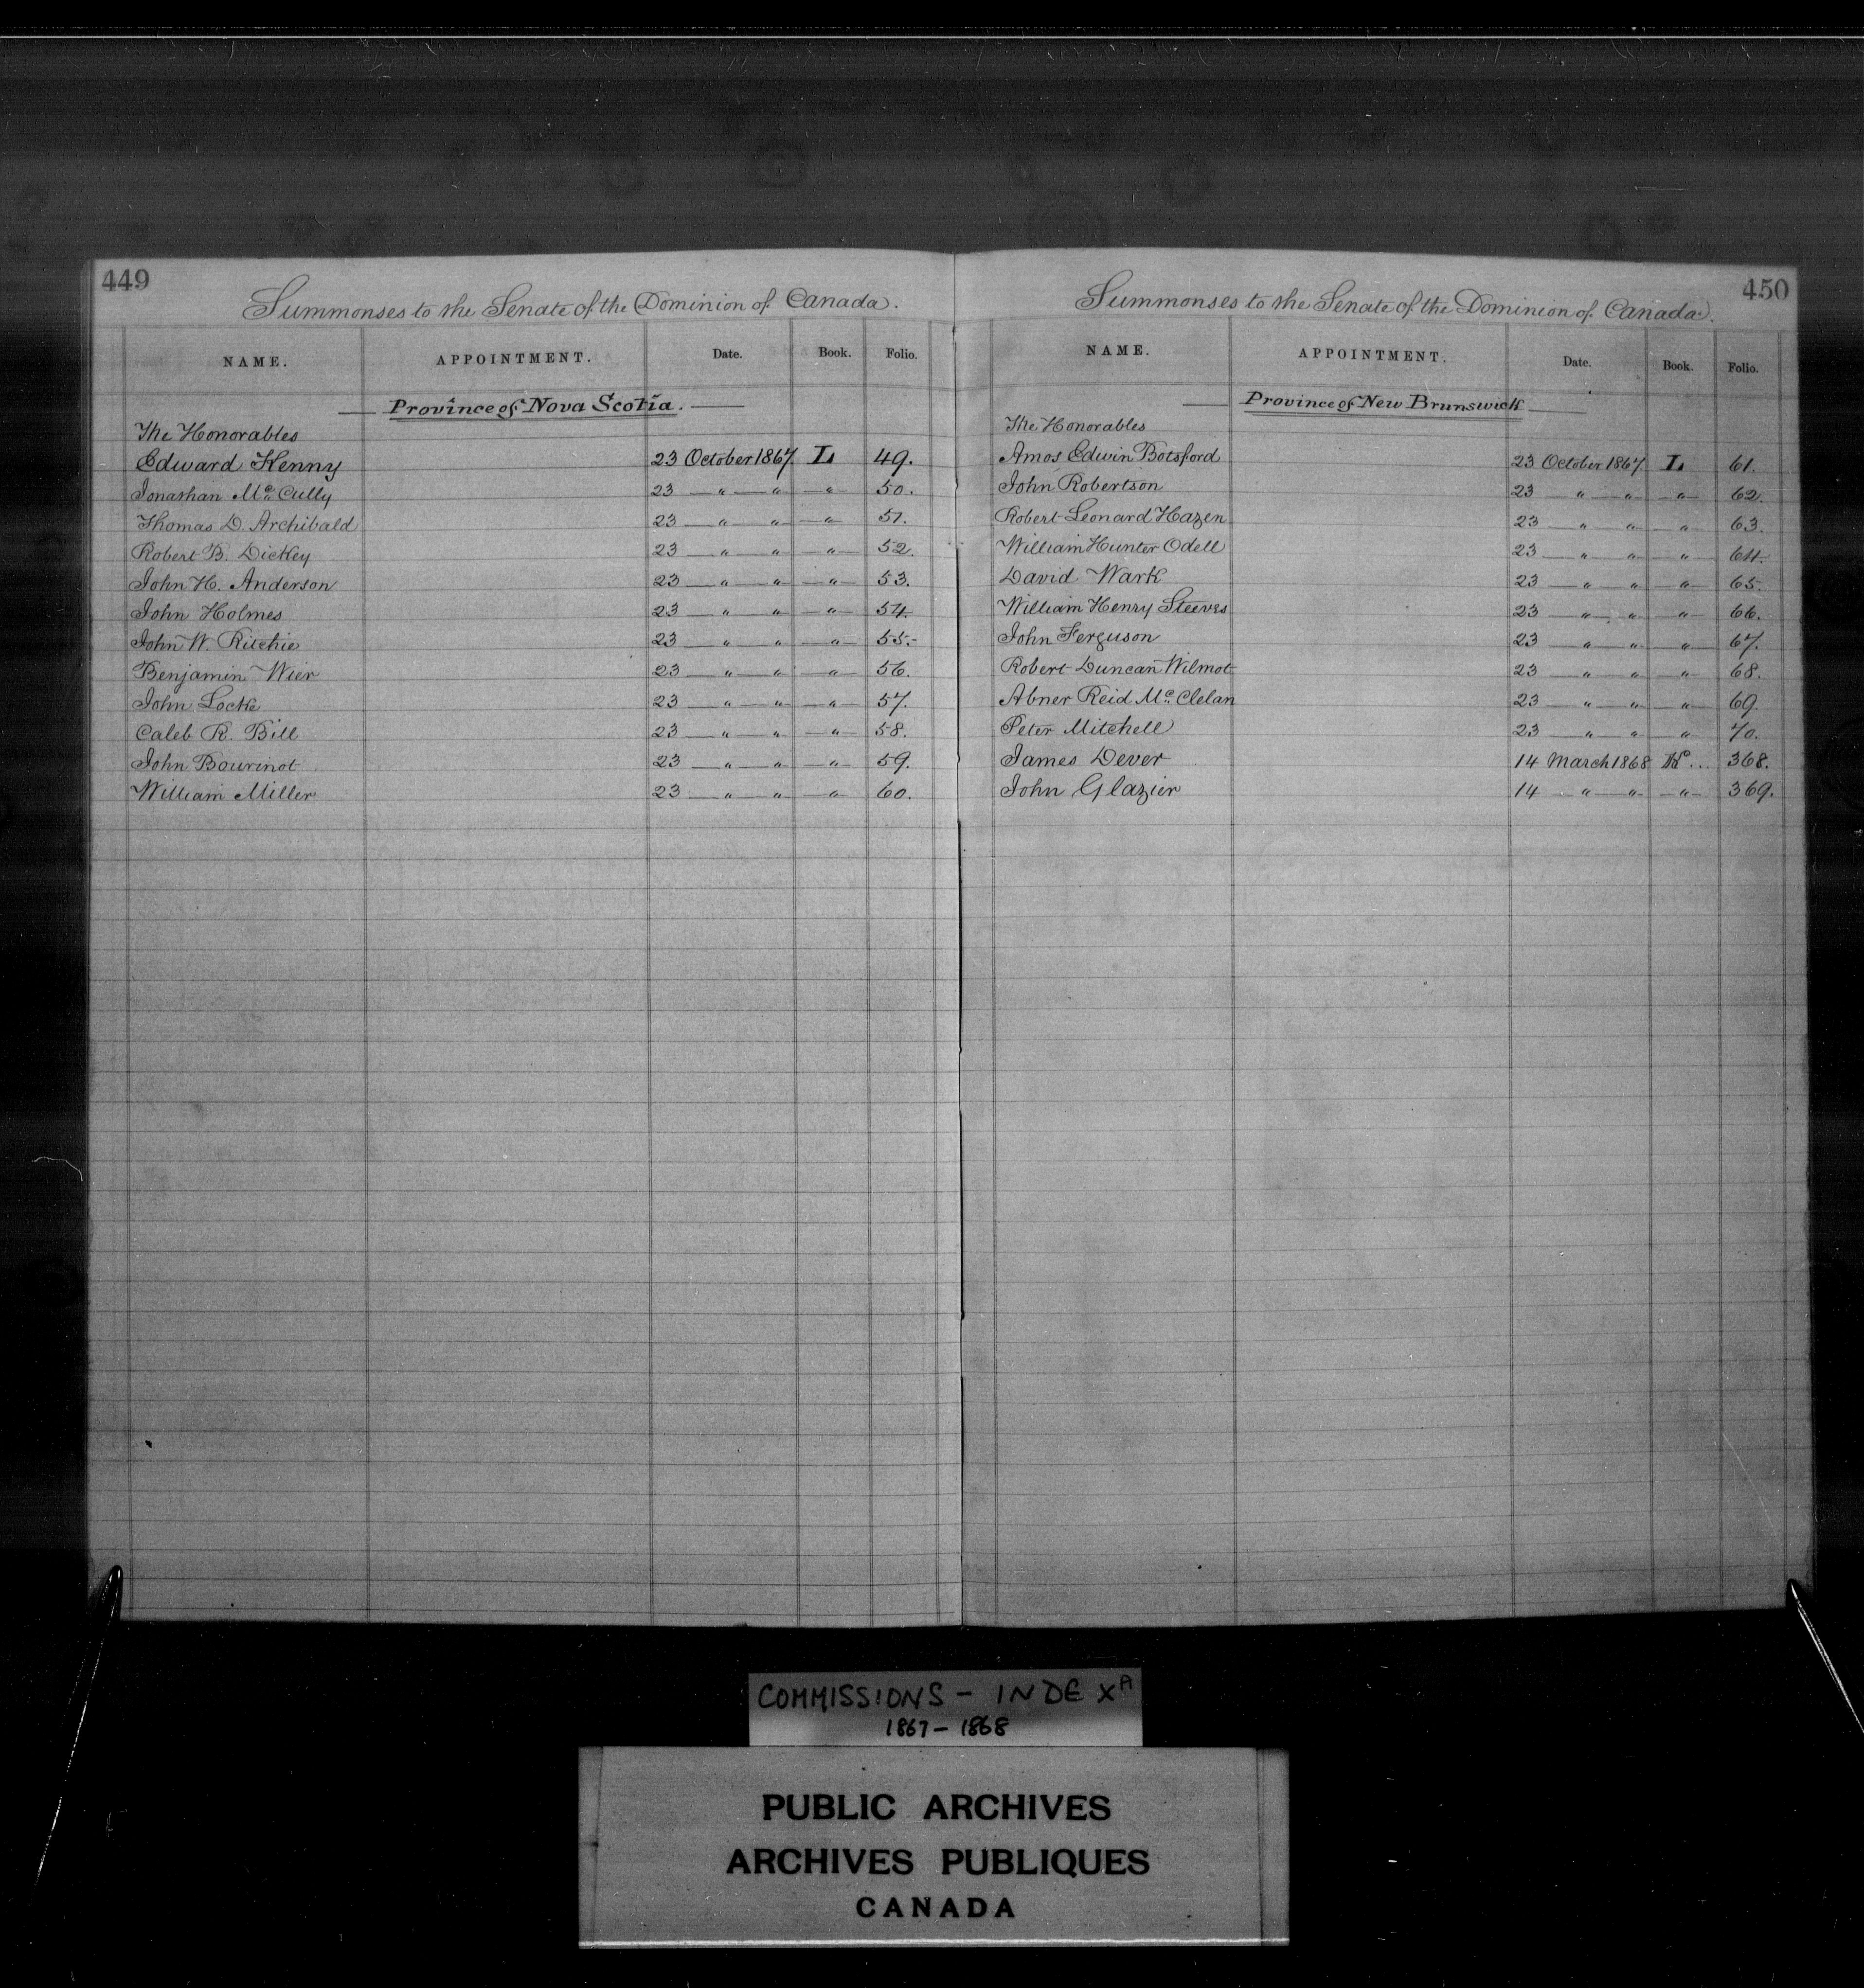 449
Summonses to the Senate of the Dominion of Canada.
NAME. APPOINTMENT. Date. Book. Folio.
Province of Nova Scotia.
The Honorables
Edward Kenny 23 October 1867. L 49.
Jonathan Mc. Cully 23 " " " 50.
Thomas D. Archibald 23 " " " 51.
Robert B. Dickey 23 " " " 52.
John H. Anderson 23 " " " 53.
John Holmes 23 " " " 54.
John W. Ritchie 23 " " " 55.
Benjamin Wier 23 " " " 56.
John Locke 23 " " " 57.
Caleb R. Bill 23 " " " 58.
John Bourinot 23 " " " 59.
William Miller 23 " " " 60.
450
Summonses to the Senate of the Dominion of Canada.
NAME. APPOINTMENT. Date. Book. Folio.
Province of New Brunswick
The Honorables
Amos Edwin Botsford 23 October 1867. L 61.
John Robertson 23 " " " 62.
Robert Leonard Hazen 23 " " " 63.
William Hunter Odell 23 " " " 64.
David Wark 23 " " " 65.
William Henry Steeves 23 " " " 66.
John Ferguson 23 " " " 67.
Robert Duncan Wilmot 23 " " " 68.
Abner Reid Mc. Clelan 23 " " " 69.
Peter Mitchell 23 " " " 70.
James Dever 14 March 1868 368.
John Glazier 14 " " " 369.
COMMISSIONS - INDEX A
1867 - 1868
PUBLIC ARCHIVES
ARCHIVES PUBLIQUES
CANADA